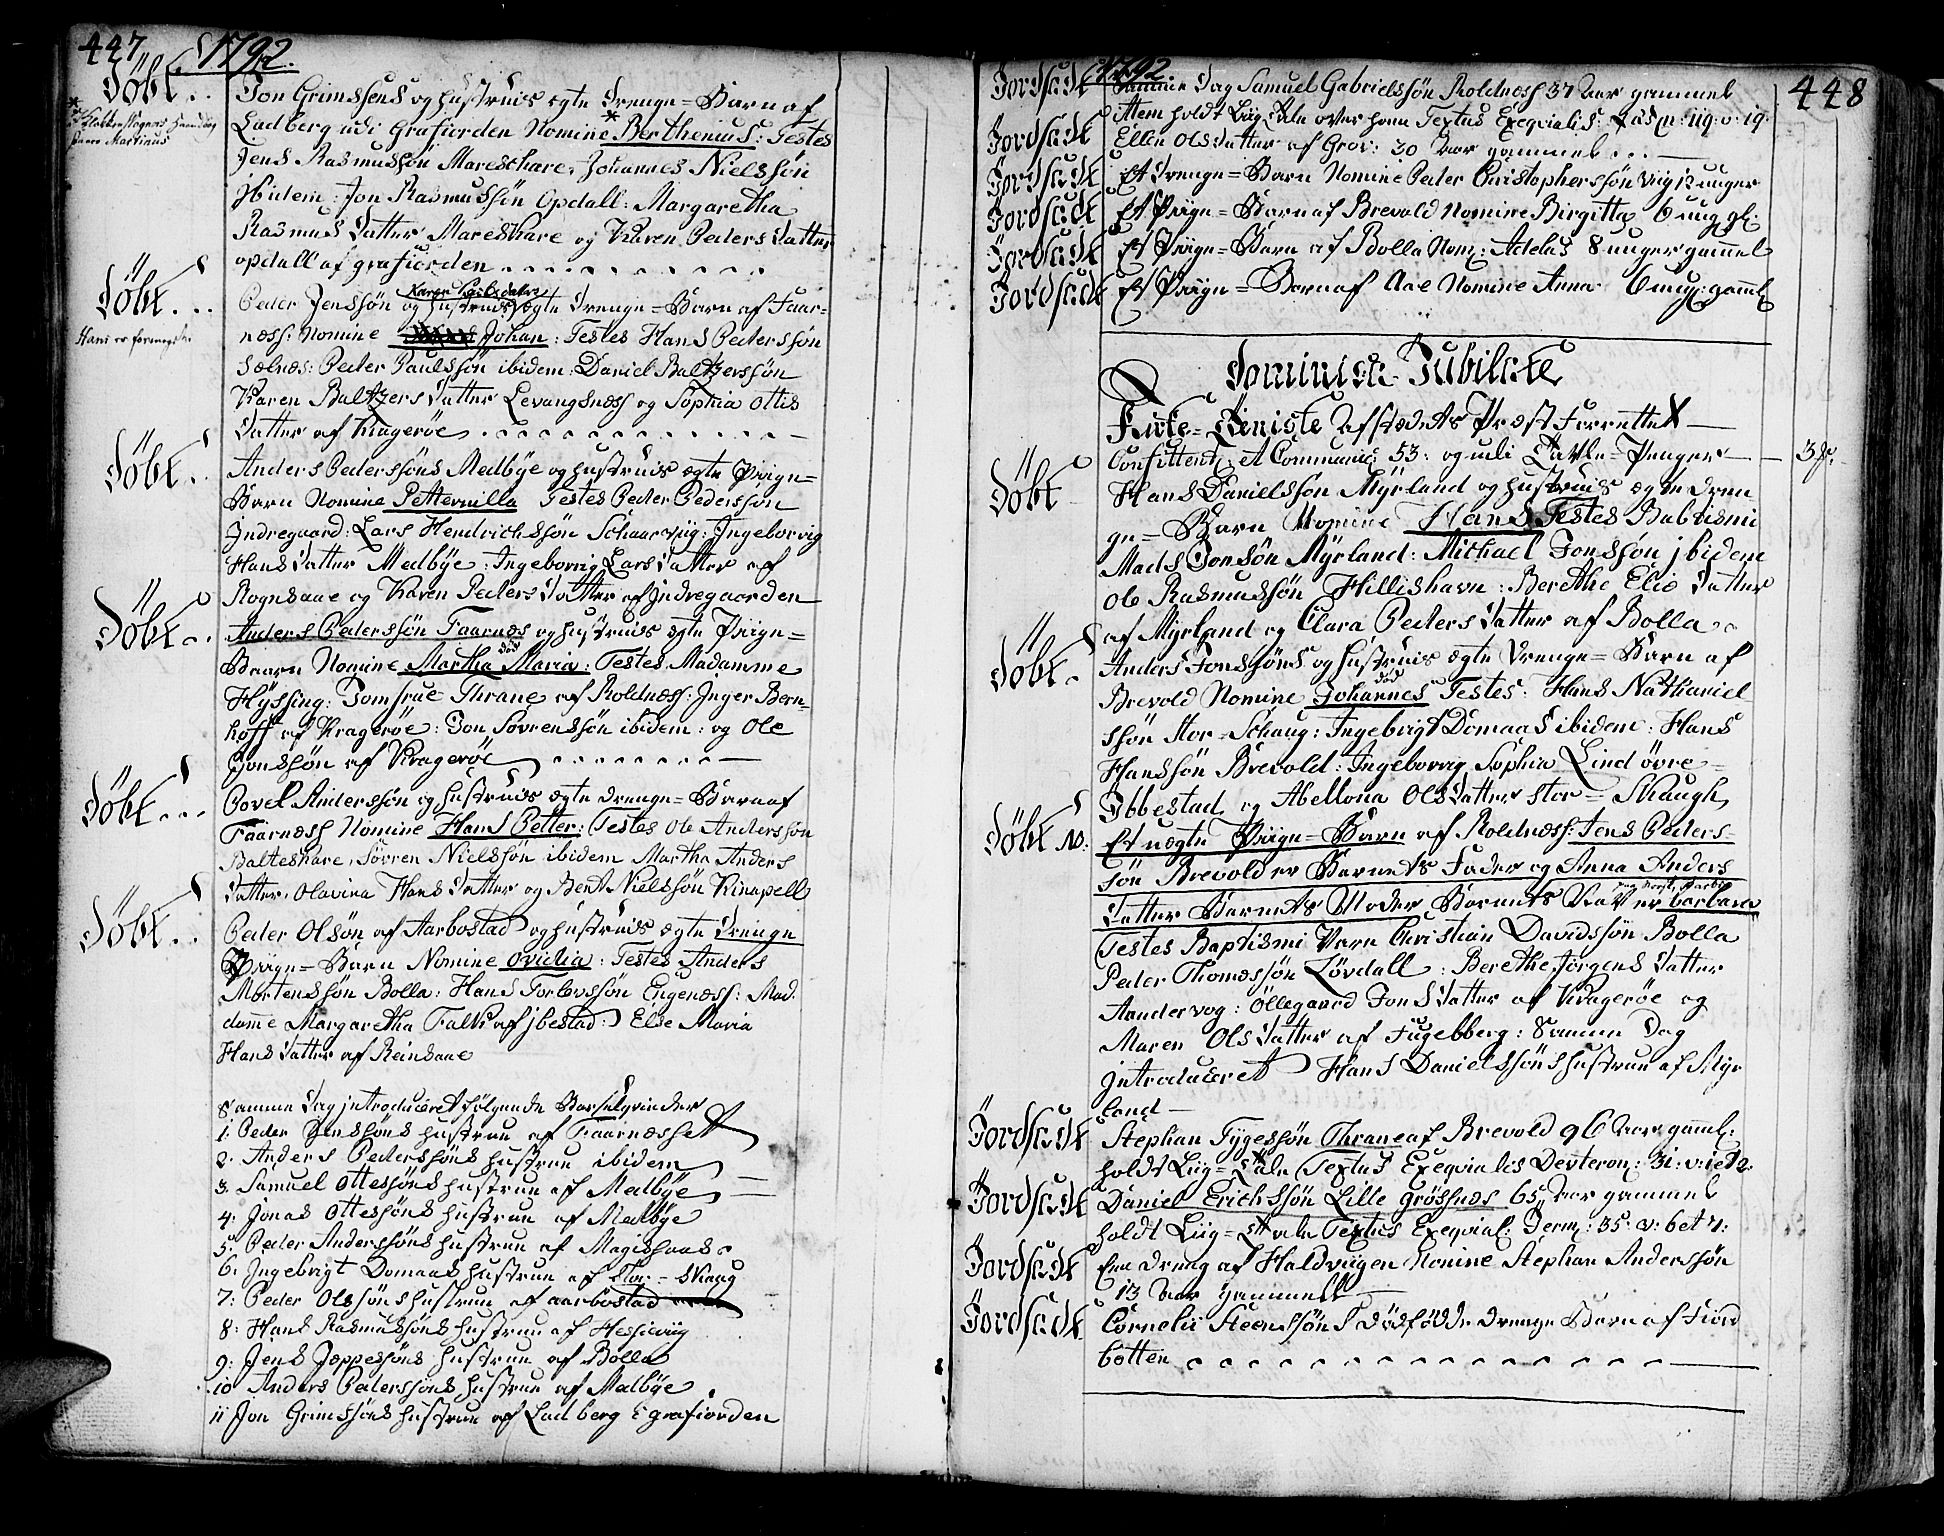 447. 1792.
Døbt.. Jon Grimssøns og hustruis ægte Drenge=Barn af
Ladberg udi Grafiorden Nomine * Berthenius: Testes
Jens Rasmussøn Mareschare, Johannes Nielssøn
jbidem: Jon Rasmussøn Opdall: Margaretha
Rasmus Datter Mareskare og Karen Peders Datter
opdall af grafiorden
Døbt... Peder Jenssøn og hustruis ægte Drenge=Barn af Faar-
Hans er
næss: Nomine Johan: Testes Hans Pederssøn
Sælnæs: Peder Paulssøn ibidem: Daniel Baltzerssøn
Karen Baltzers Datter Levangsnæss og Sophia Ottis
Datter af Kragerøe
Døbt.. Anders Pederssøns Medbye og hustruis ægte Piige=
Barn Nomine Petternilla Testes Peder Pederssøn
Indregaard: Lars Hendrichssøn Schaarviig: Ingeborvig
Hans Datter Medbye: Ingeborvig Lars Datter af
Rognsaae og Karen Peders Datter af Indregaarden
Døbt.. Anders Pederssøn Faarnæs og hustruis ægte Piige=
død
Baarn Nomine Martha Maria: Testes Madamme
Hyssing: Jomfrue Thrane af Roldnæss: Inger Bern-
hoff af Kragerøe: Jon Sørenssøn ibidem: og Ole
Jonssøn af Kragerøe
Døbt... Povel Anderssøn og hustruis ægte Drenge=Barn af
Faarnæss Nomine Hans Petter: Testes Ole Anderssøn
Balteskare, Sørren Nielssøn ibidem Martha Anders
Datter, Olavina Hans Datter og Bent Nielssøn Kinapell
Døbt.. Peder Olsøn af Aarbostad og hustruis ægte Drenge
Piige=Barn Nomine Ovidia: Testes Anders
Mortenssøn Bolla: Hans Torlevssøn Engenæss: Mad-
damme Margaretha Falk af jbestad: Else Maria
Hans Datter af Reinsaae
Samme Dag introduceret følgende Barselqvinder
1: Peder Jenssøns hustrue af Faarnæsset
2. Anders Pederssøns hustrue ibidem
3. Samuel Ottessøns hustrue af Medbye
4: Jonas Ottessøns hustrue af Medbye
5. Peder Anderssøns hustrue af
6. Ingebrigt Domaas hustrue af Stor=Skaug
7: Peder Olssøns hustrue af aarbostad
8: Hans Rasmussøns hustrue af Hessieviig
9: Jens Jeppessøns hustrue af Bolla
10 Anders Pederssøns hustrue af Medbye
11 Jon Grimssøns hustrue af Ladberg i grafiorden
1792. 448
Jordfæstet Samme Dag Samuel Gabrielssøn Roldnæss 37 Aar gammel
Item holdt Liig Tale over ham Textus Exeqvialis: 119: v: 19.
Jordfæstet Ellen Ols Datter af Grov: 30 Aar gammel
Jordfæstet Et Drenge=Barn Nomine Peder Christopherssøn Viig 12 uger
Jordfæstet Et Piige=Barn af Brevold Nomine Birgitta 6 uug gl:
Jordfæstet Et Piige=Barn af Bolla Nom: Adelus 8 uger gammel
Jordfæstet Et Piige=Barn af Aae Nomine Anna 6 uug: gaml
Dominica Jubilate
Kirke=Tieniste af stædets Præst Forrettet
Confitent: et Communic: 53: og udi Tavle=Penger 3
Døbt Hans Danielssøn Myrland og hustruis ægte Dren
ge=Barn Nomine Hans Testes Babtismi
Mads Jonsøn Myrland: Michael Jonssøn jbidem
Ole Rasmussøn Hillishavn: Berethe Elie Datter
af Myrland og Clara Peders Datter af Bolla
Døbt. Anders Jonssøns og hustruis ægte Drenge=Barn af
død
Brevold Nomine Johannes Testes: Hans Nathaniel
ssøn Stor=Schaug: Ingebrigt Domaas ibidem: Hans
Hanssøn Brevold: Ingeborvig Sophia Lind øvre
Ibbestad og Abellona Ols Datter Stor=Skaugh
Døbt No: Et uægte Piige=Barn af Roldnæss: Jens Peders-
søn Brevold er Barnets Fader og Anna Anders
Datter Barnets Moder Barnets Navn er Barbara
Testes Baptismi Vare Christian Davidssøn Bolla
Peder Thomassøn Løvdall: Berethe Jørgens Datter
Aandervog: Øllegaard Jons Datter af Kragerøe og
Maren Ols Datter af Fugebberg: Samme Dag
introduceret Hans Danielssøns hustrue af Myr
land
Jordfæstet Stephan Tygessøn Thrane af Brevold 96 Aar gaml:
holdt Liig=Tale Textus Exeqvialis Devteron: 31: v: 1 et 2.
Jordfæstet Daniel Erichssøn Lille Grøssnæs 65 Aar gammel
holdt Liig=Tale Textus Exeqvial: Jerm: 35: v: 6 et 7:
Jordfæstet Een Dreng af Haldviigen Nomine Stephan Anderssøn
13 Aar gammell
Jordfæstet Cornelii Steenssøns Dødfødde Drenge Barn af Fiord
botten